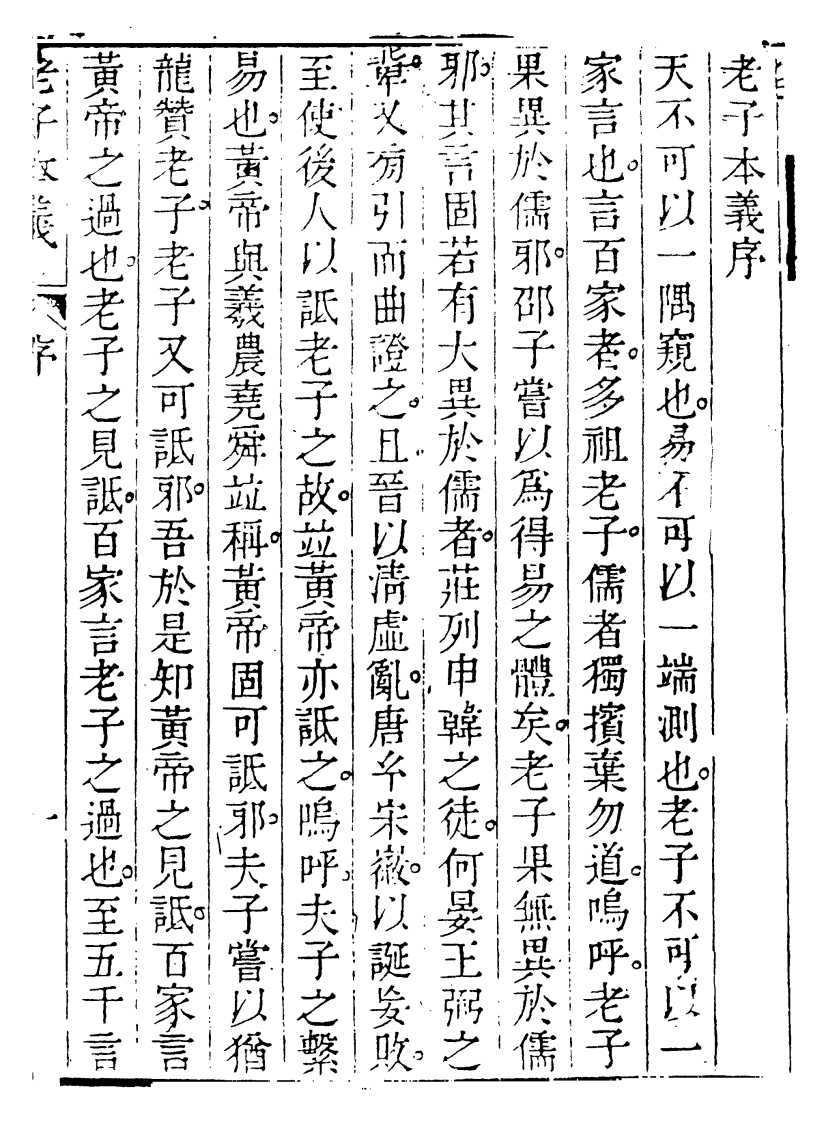 老子本義序
天不可以一隅窺也。易不可以一端測也。老子不可以一
家言也。言百家者。多祖老子。儒者獨擯棄勿道。嗚呼。老子
果異於儒邪。邵子嘗以爲得易之體矣。老子果無異於儒
邪。其言固若有大異於儒者。莊列申韓之徒。何晏王弼之
輩。又有引而曲證之。且晉以淸虛亂。唐玄宋徽。以誕妄敗。
至使後人以詆老子之故。竝黃帝亦詆之。嗚呼。夫子之繫
易也。黃帝與羲農堯舜竝稱。黃帝固可詆邪。夫子嘗以猶
龍贊老子。老子又可詆邪。吾於是知黃帝之見詆。百家言
黃帝之過也。老子之見詆。百家言老子之過也。至五千言
老子本義 序 一